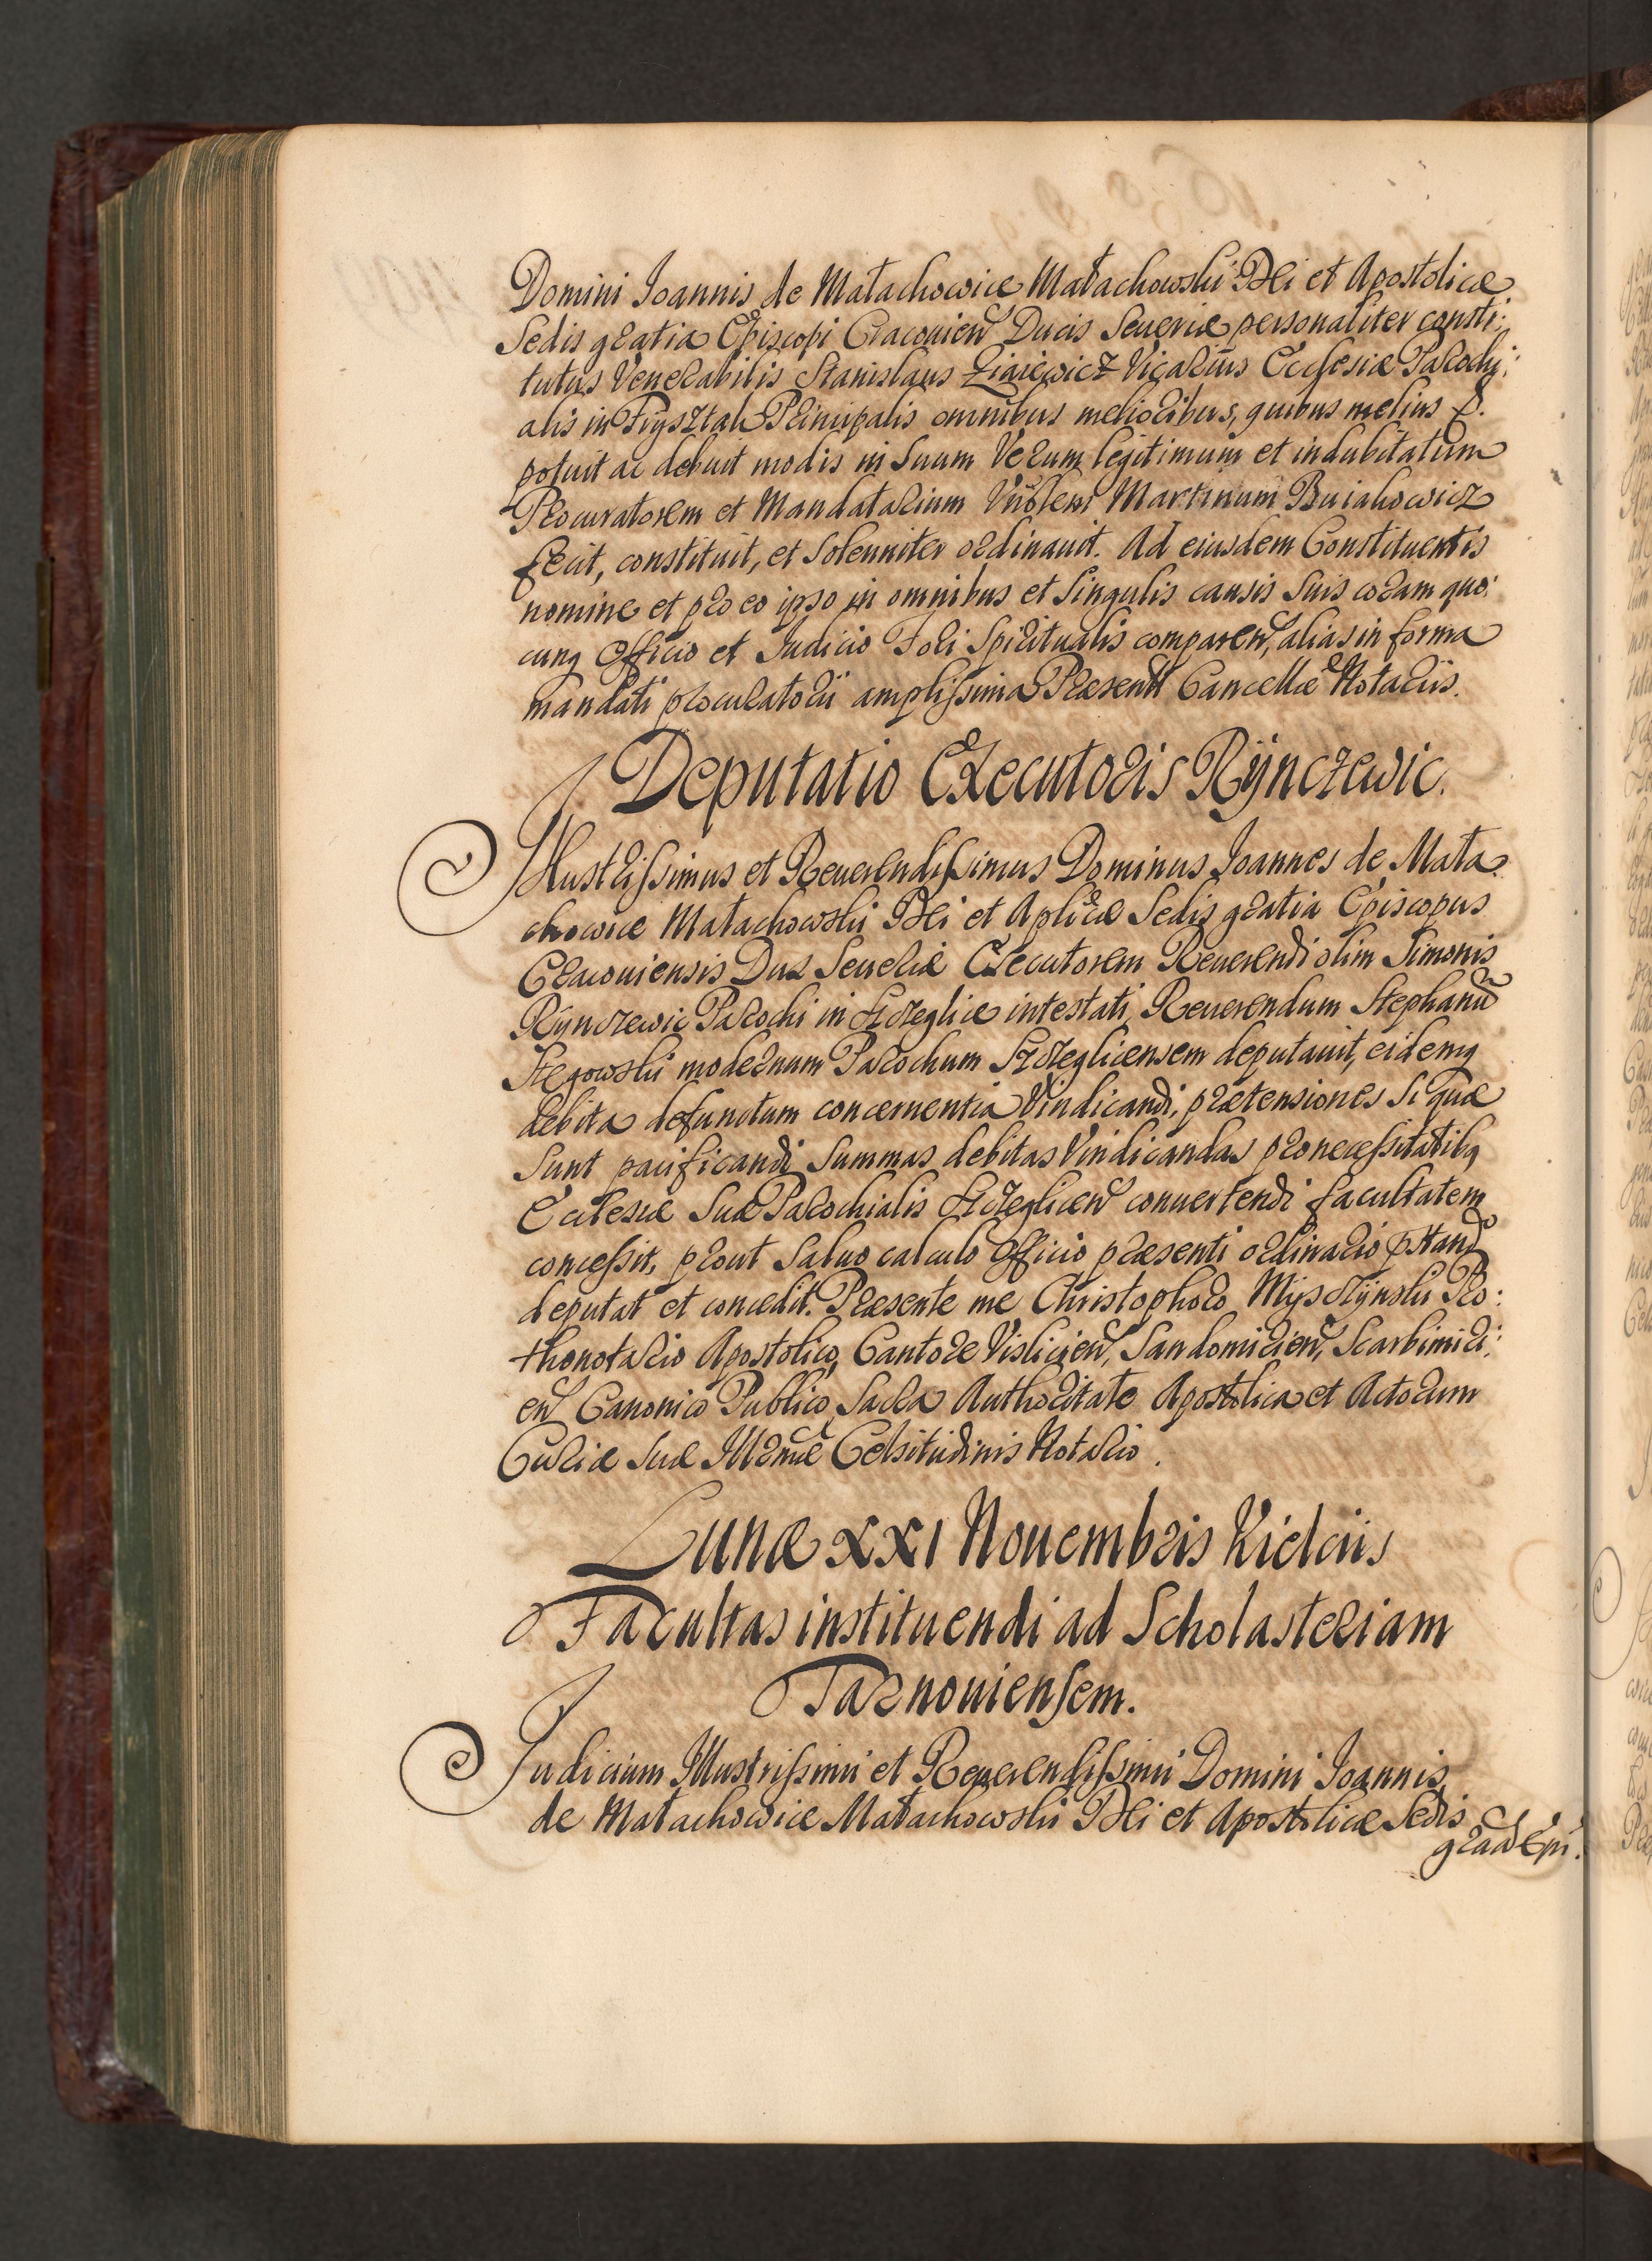 Domini Joannis de Małachowice Małachowski Dei et Apostolicæ
Sedis gratia Episcopi Cracouien Ducis Seueriæ personaliter consti:
tutus Venerabilis Stanislaus Ziaiewicz Vicarius Ecclesiæ Parochi:
alis in Frysztak Principalis omnibus melioribus, quibus melius
potuit ac debuit modis in Suum Verum legitimum et indubitatum
Procuratorem et Mandatarium Vnblem Martinum Buiakowicz
fecit, constituit, et Solenniter ordinauit. Ad eiusdem Constituentis
nomine et pro eo ipso in omnibus et Singulis causis Suis coram quo:
cunq Officio et Judicio Fori Spiritualis comparen, alias in forma
mandati procuratorii amplissima Præsentt Cancellæ Notariis.
Deputatio Executoris Rÿnczewic.
Illustrissimus et Reuerendissimus Dominus Joannes de Mała
chowice Małachowski Dei et Aplicæ Sedis gratia Episcopus
Cracouiensis Dux Seueriæ Executorem Reuerendi olim Simonis
Rÿnczewic Parochi in Szczeglice intestati, Reuerendum Stephanu
Stegowski modernum Parochum Szczeglicensem deputauit, eidemq
debita defunctum concernentia Vindicandi, prætensiones Si quæ
Sunt pacificandi Summas debitas Vindicandas pro necessitatibq
Ecclesiæ Suæ Parochialis Szczeglicen conuertendi facultatem
concessit, prout Saluo calculo Officio præsenti ordinario pstando
deputat et concedit. Præsente me Christophoro Mÿsczÿnski Pro:
thonotario Apostolico, Cantore Vislicien, Sandomirien, Scarbimiri:
en Canonico Publico, Sacra Authoritate Apostolica et Actorum
Curiæ Suæ Illrmæ Celsitudinis Notario.
Lunæ XXI Nouembris Kielciis
Facultas instituendi ad Scholasteriam
Tarnouiensem.
Judicium Illustrissimi et Reuerendissimi Domini Joannis
de Małachowice Małachowski Dei et Apostolicæ Sedis
graa Epi: